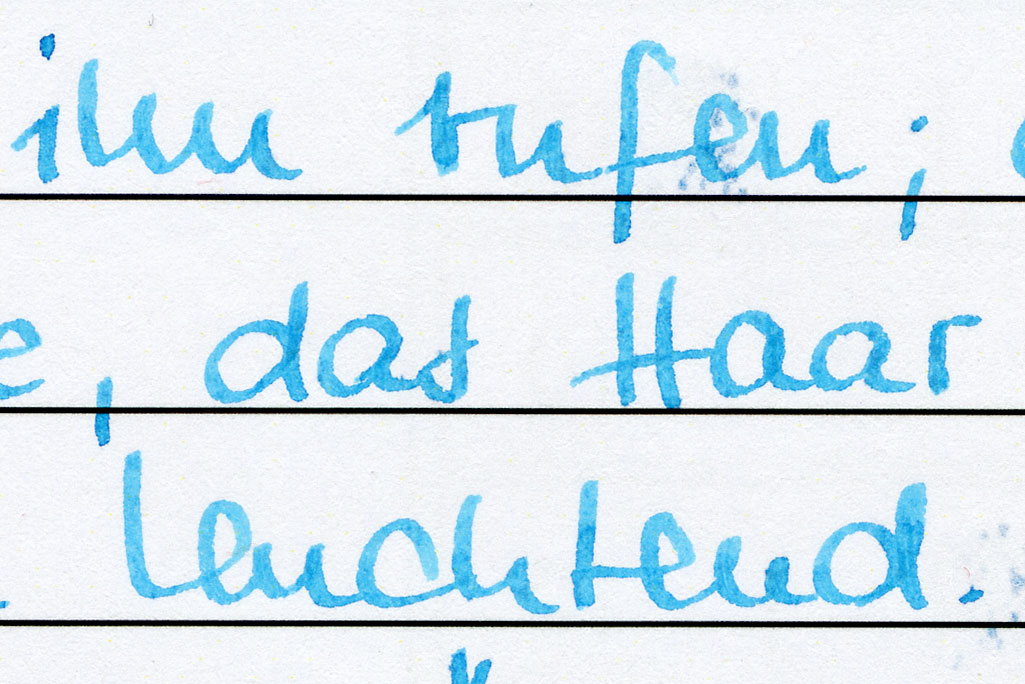 ihn rufen;
e, das Haar
leuchtend.